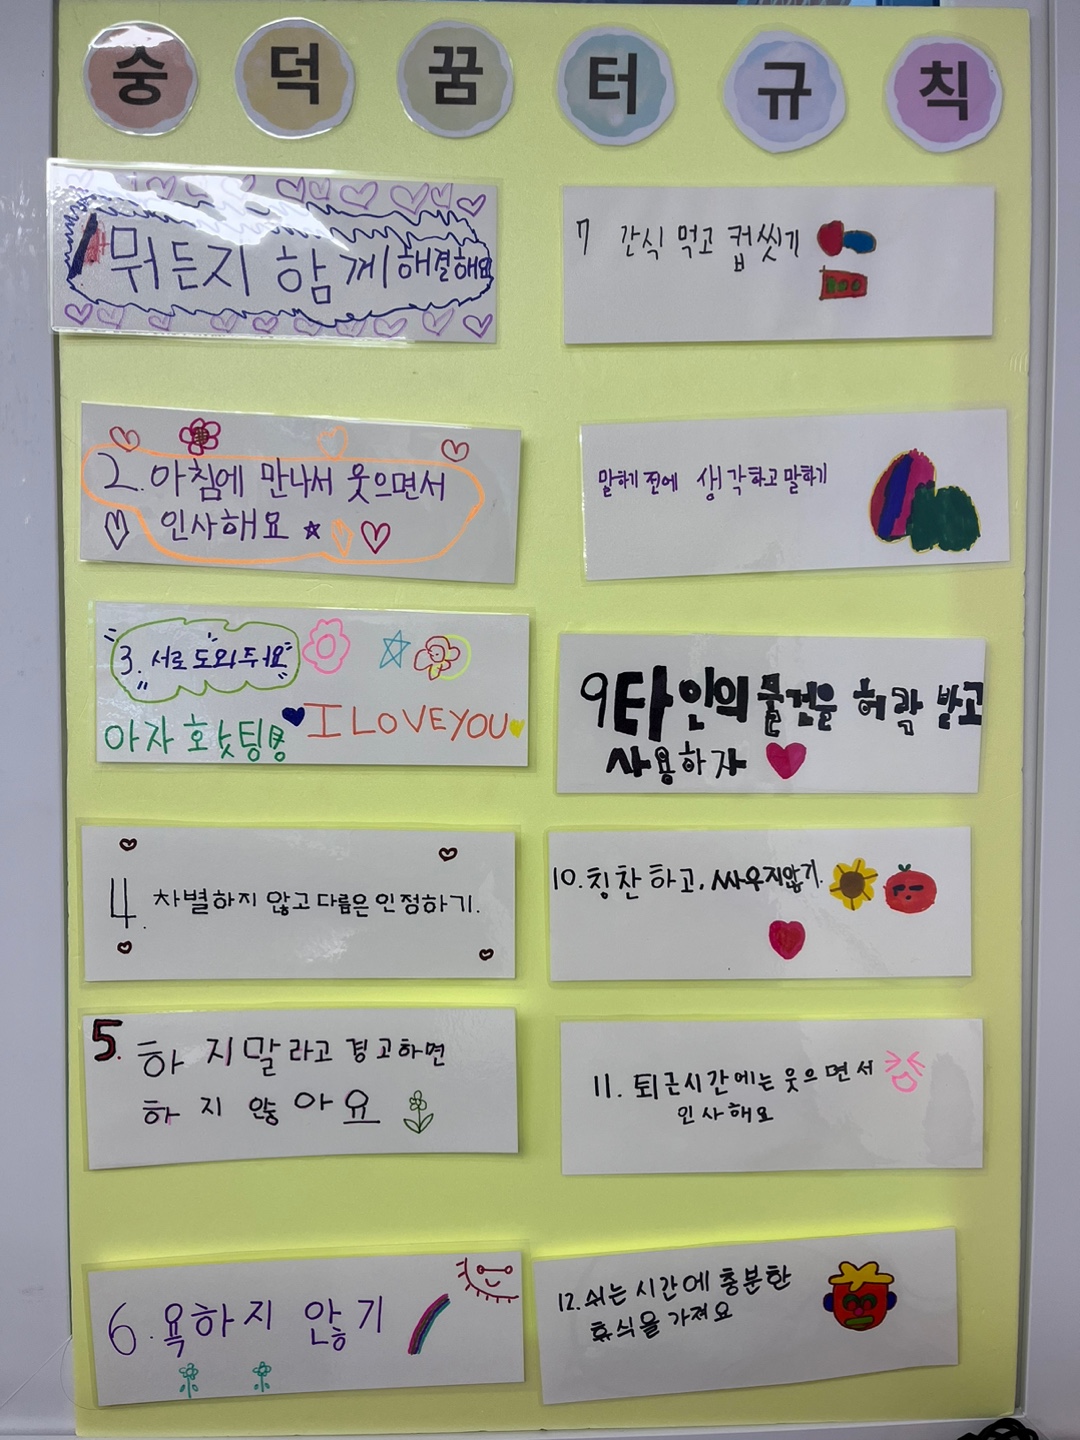 숭덕꿈터규칙
1 뭐든지 함께 해결해요
2. 아침에 만나서 웃으면서
인사해요
3. 서로 도와주어요
아자 홧팅
I LOVE YOU
4. 차별하지 않고 다름은 인정하기.
5. 하지말라고 경고하면
하지 않아요
6. 욕하지 않기
7 간식 먹고 컵씻기
말하기 전에 생각하고 말하기
9 타인의 물건을 허락 받고
사용하자
10. 칭찬하고, 싸우지않기.
11. 퇴근시간에는 웃으면서
인사해요
12. 쉬는 시간에 충분한
휴식을 가져요